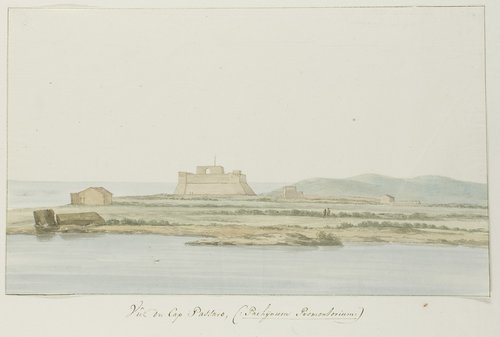 Vüe du Cap Passaro, (: Pachynum Promontorium :)